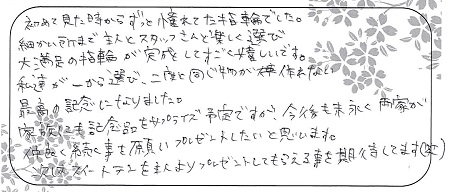 初めて見た時からずっと憧れてた指輪でした。
細かい所まで主人とスタッフさんと楽しく選び
大満足の指輪が完成してすごく嬉しいです。
私達が一から選び、二度と同じ物が作れない
最高の記念になりました。
家族にも記念品をサプライズ予定ですが、今後も末永く両家が
仲良く続く事を願いプレゼントしたいと思います。
次はスイートテンを主人よりプレゼントしてもらえる事を期待してます(笑)